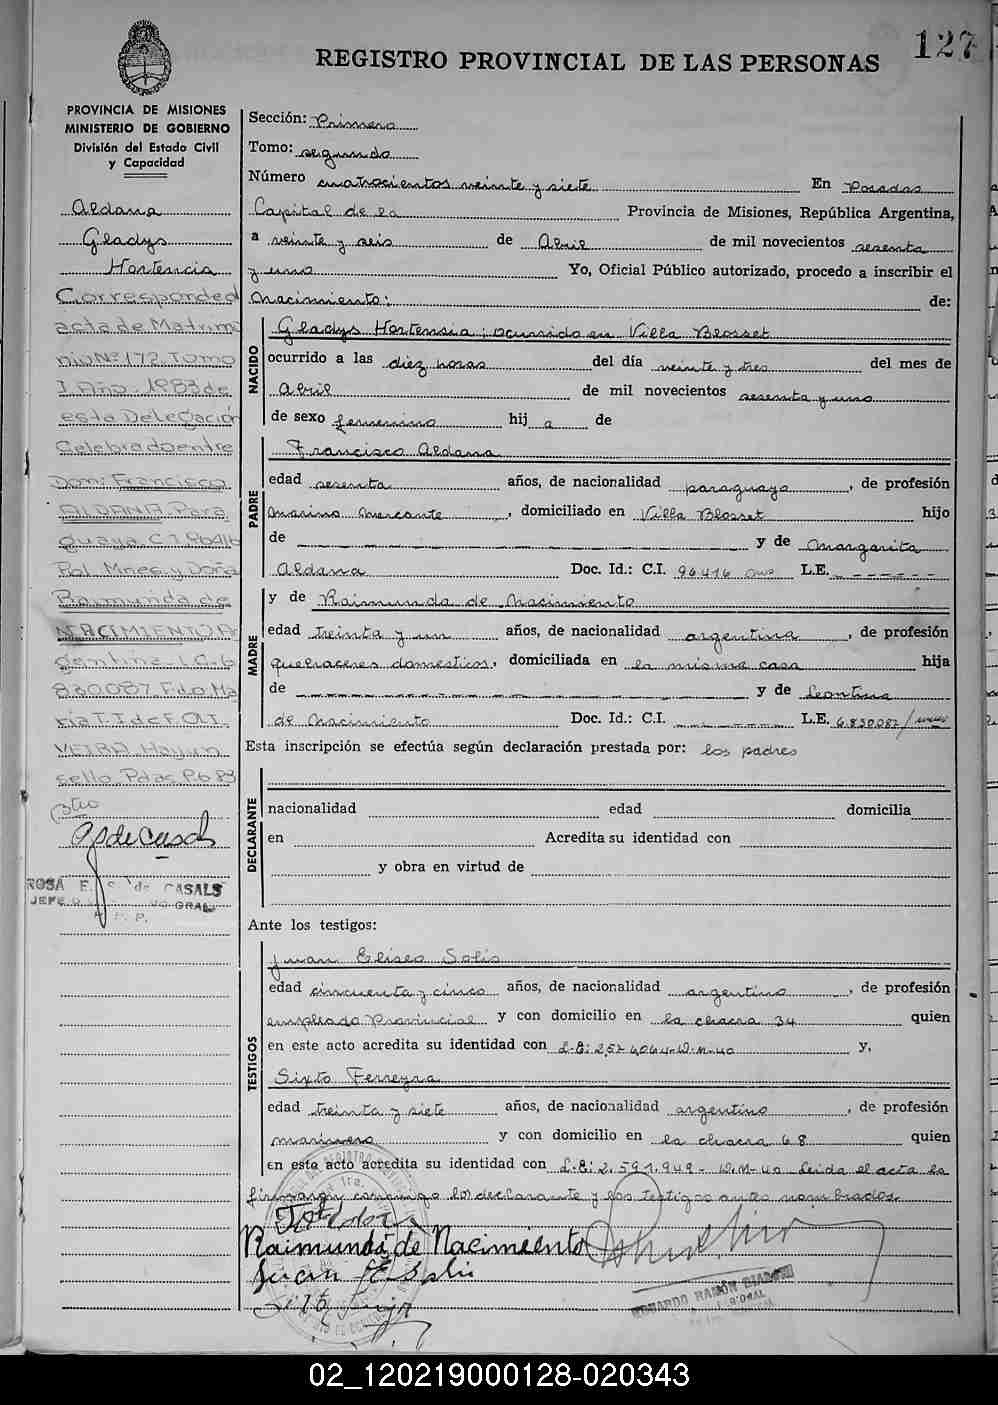 127
REGISTRO PROVINCIAL DE LAS PERSONAS
PROVINCIA DE MISIONES
MINISTERIO DE GOBIERNO
División del Estado Civil
y Capacidad
Aldana
Gladys
Hortencia
Corresponded
acta de Matrimo
nio Nº 172 Tomo
I Año 1983 de
esta Delegación
Celebrado entre
Don: Francisco
ALDANA Para
guaya C.I. 96416
Pol. Mnes y Doña
Raimunda de
NACIMIENTO Ar
gentina L.C. 6
830087 Fdo Ma
ria T. I de F. OLI
VEIRA Hay un
sello Pdas
ROSA E. S. de CASALS
Sección: Primera
Tomo: segundo
Número cuatrocientos veinte y siete En Posadas
Capital de la Provincia de Misiones, República Argentina,
a veinte y seis de Abril de mil novecientos sesenta
y uno Yo, Oficial Público autorizado, procedo a inscribir el
Nacimiento: de:
NACIDO
Gladys Hortensia; ocurrido en Villa Blosset
ocurrido a las diez horas del día veinte y tres del mes de
Abril de mil novecientos sesenta y uno
de sexo femenino hij a de
PADRE
Francisco Aldana
edad sesenta años, de nacionalidad paraguaya, de profesión
Marino Mercante, domiciliado en Villa Blosset hijo
de y de Margarita
Aldana Doc. Id.: C.I. 96416 L.E.
MADRE
y de Raimunda de Nacimiento
edad treinta y un años, de nacionalidad argentina, de profesión
quehaceres domesticos, domiciliada en la misma casa hija
de y de Leontina
de Nacimiento Doc. Id.: C.I. L.E. 6.830.087/
Esta inscripción se efectúa según declaración prestada por: los padres
DECLARANTE
nacionalidad edad domicilia
en Acredita su identidad con
y obra en virtud de
Ante los testigos:
TESTIGOS
Juan Eliseo Solis
edad cincuenta y cinco años, de nacionalidad argentino, de profesión
empleado Provincial y con domicilio en la chacra 34 quien
en este acto acredita su identidad con L.E: y,
Sixto Ferreyra
edad treinta y siete años, de nacionalidad argentino, de profesión
marinero y con domicilio en la chacra 68 quien
en este acto acredita su identidad con L.E: 2.591.949- D.M.40 Leida el acta la
firman conmigo los declarante y los testigos antes nombrados.
Raimunda de Nacimiento
Juan E Solis
02_120219000128-020343